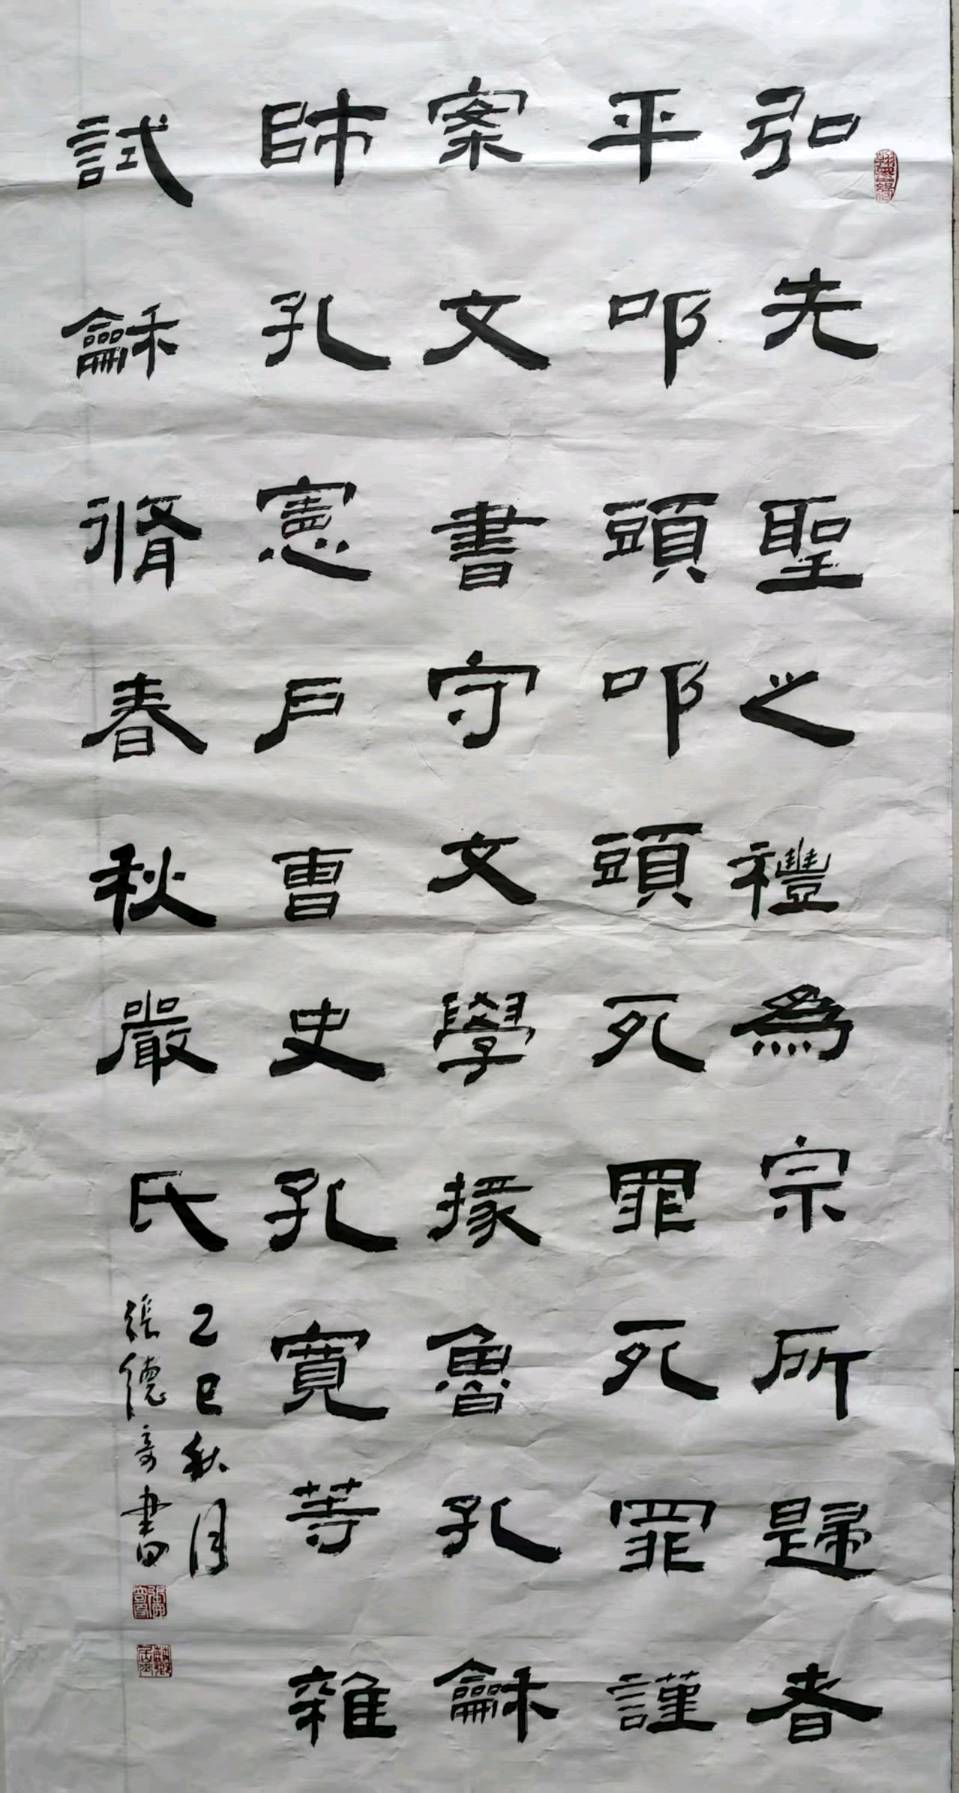 弘先聖之禮為宗所歸者
平叩頭叩頭死罪死罪謹
案文書守文學掾魯孔龢
師孔憲戶曹史孔寬等雜
試龢脩春秋嚴氏
乙巳秋月
張德奇書